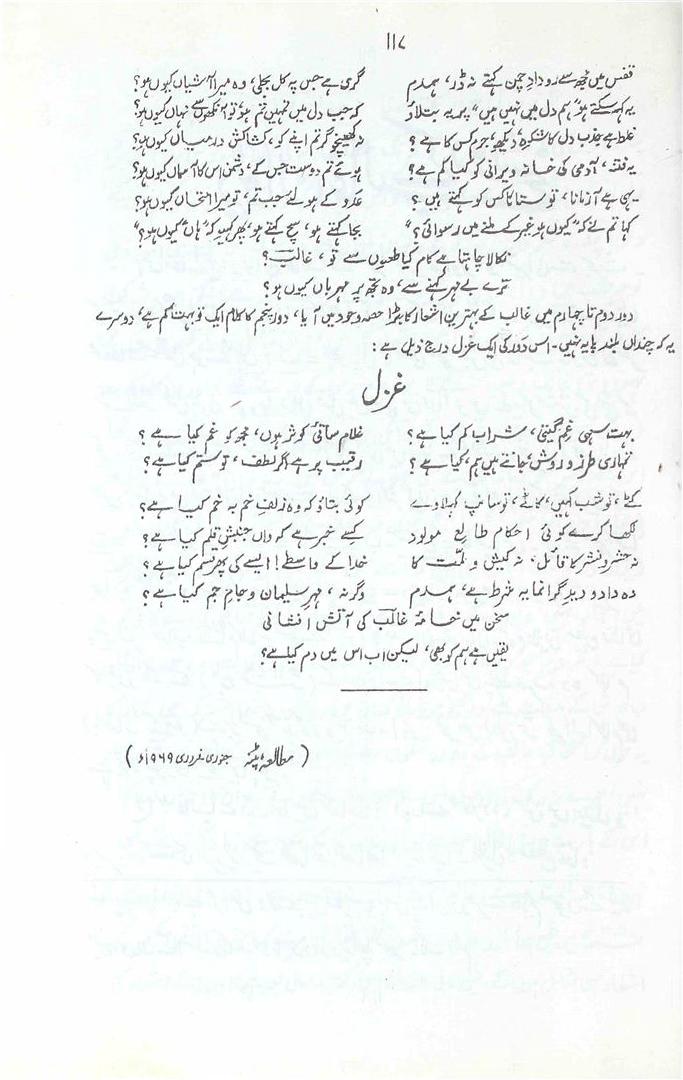 ۱۱۷
قفس میں مجھ سے رودادِ چمن کہتے نہ ڈر، ہمدم گری ہے جس پہ کل بجلی، وہ میرا آشیاں کیوں ہو؟
یہ کہہ سکتے ہو "ہم دل میں نہیں ہیں" پر یہ بتلاؤ کہ جب دل میں تمہیں تم ہو، تو آنکھوں سے نہاں کیوں ہو؟
غلط ہے جذبِ دل کا شکوہ، دیکھو، جرم کس کا ہے؟ نہ کھینچو گر تم اپنے کو، کشاکش درمیاں کیوں ہو؟
یہ فتنہ، آدمی کی خانہ ویرانی کو کیا کم ہے؟ ہوئے تم دوست جس کے، دشمن اس کا آسماں کیوں ہو؟
یہی ہے آزمانا، تو ستانا کس کو کہتے ہیں؟ عدو کے ہو لئے جب تم، تو میرا امتحاں کیوں ہو؟
کہا تم نے کہ "کیوں ہو غیر کے ملنے میں رسوائی؟" بجا کہتے ہو، سچ کہتے ہو، پھر کہیو کہ "ہاں کیوں ہو؟"
نکالا چاہتا ہے کام کیا طعنوں سے تو، غالبؔ؟
ترے بے مہر کہنے سے، وہ تجھ پر مہرباں کیوں ہو؟
دور دوم تا چہارم میں غالب کے بہترین اشعار کا بڑا حصہ وجود میں آیا، دور پنجم کا کلام ایک تو بہت کم ہے، دوسرے
یہ کہ چنداں بلند پایہ نہیں۔ اس دَور کی ایک غزل درج ذیل ہے:
غزل
بہت سہی غمِ گیتی، شراب کم کیا ہے؟ غلامِ ساقیٔ کوثر ہوں، مجھ کو غم کیا ہے؟
تمہاری طرز و روش، جانتے ہیں ہم، کیا ہے؟ رقیب پر ہے اگر لطف، تو ستم کیا ہے؟
کٹے، تو شب کہیں، کاٹے، تو سانپ کہلاوے کوئی بتاؤ کہ وہ زلفِ خم بہ خم کیا ہے؟
لکھا کرے کوئی احکام طالعِ مولود کسے خبر ہے کہ واں جنبشِ قلم کیا ہے؟
نہ حشر و نشر کا قائل، نہ کیش و ملّت کا خدا کے واسطے! ایسے کی پھر قسم کیا ہے؟
وہ داد و دید گرانمایہ شرط ہے، ہمدم وگرنہ، مہرِ سلیمان و جامِ جم کیا ہے؟
سخن میں خامۂ غالبؔ کی آتش افشانی
یقیں ہے ہم کو بھی، لیکن اب اس میں دم کیا ہے؟
(مطالعہ، پٹنہ جنوری، فروری ۱۹۶۹ء)